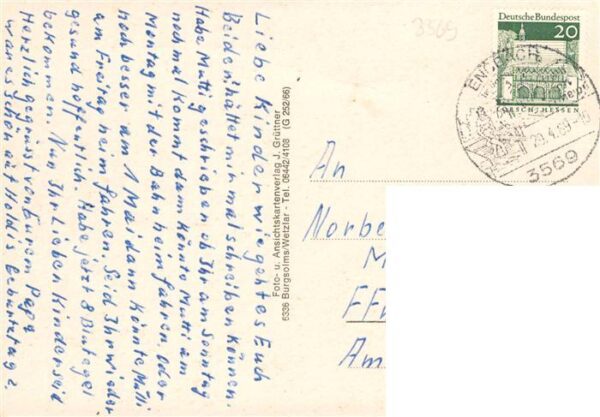 Liebe Kinder wie gehts Euch
Beiden hättet mir mal schreiben können.
Habe Mutti geschrieben ob Ihr am Sonntag
nochmal kommt dann könnte Mutti am
Montag mit der Bahn heim fahren. Oder
noch besser am 1 Mai dann könnte Mutti
am Freitag heim fahren. Seid Ihr wieder
gesund hoffentlich. Habe jetzt 8 Blutegel
bekommen. Nun Ihr Lieben Kinder seid
Herzlich gegrüsst von Eurem Papa
war es schön auf Holdis Geburtztag?
Foto- u. Ansichtskartenverlag J. Grüttner
6336 Burgsolms/Wetzlar - Tel. 06442/4108 (G 252/66)
3569
Deutsche Bundespost
20
LORSCH/HESSEN
ENDBACH
29.4.69
3569
An
Norbe
M
FF
Am